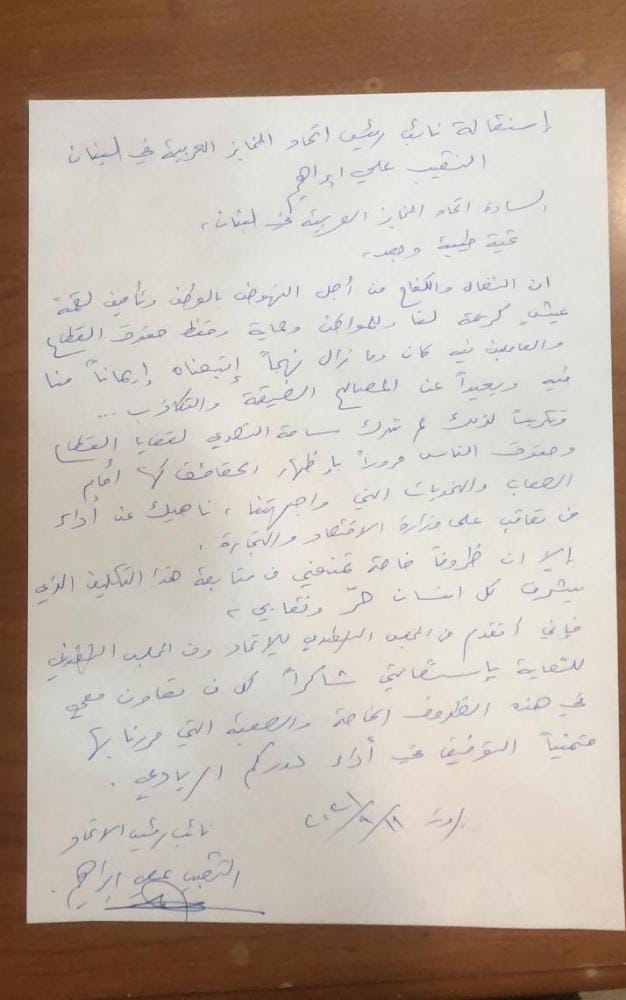 إستقالة نائب رئيس اتحاد المخابز العربية في لبنان
النقيب علي ابراهيم
السادة اتحاد المخابز العربية في لبنان،
تحية طيبة وبعد،
ان النضال والكفاح من أجل النهوض بالوطن وتأمين لقمة
عيشٍ كريمة لنا وللمواطن وحماية وحفظ حقوق القطاع
والعاملين فيه كان وما زال نهجاً إتبعناه إيماناً منا
فيه وبعيداً عن المصالح الضيقة والتكاذب ...
وتكريساً لذلك لم نترك ساحة التصدي لقضايا القطاع
وحقوق الناس مروراً بإظهار الحقائق كما أمام
الصعاب والتحديات التي واجهتنا، ناهيك عن أداء
من تعاقب على وزارة الاقتصاد والتجارة.
إلا ان ظروفاً خاصة تمنعني من متابعة هذا التكليف الذي
يشرف كل انسان حرّ ونقابي،
فإني أتقدم من المجلس التنفيذي للإتحاد ومن المجلس التنفيذي
للنقابة بإستقالتي شاكراً كل من تعاون معي
في هذه الظروف الخاصة والصعبة التي مررنا بها
متمنياً التوفيق في أداء دوركم الريادي.
بيروت
نائب رئيس الاتحاد
النقيب علي ابراهيم